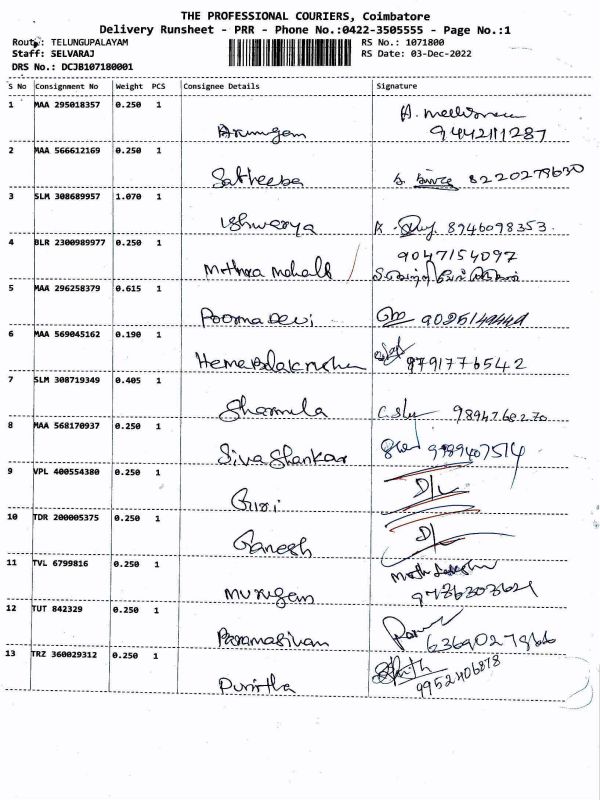 THE PROFESSIONAL COURIERS, Coimbatore
Delivery Runsheet - PRR - Phone No.:0422-3505555 - Page No.:1
Route: TELUNGUPALAYAM RS No.: 1071800
Staff: SELVARAJ RS Date: 03-Dec-2022
DRS No.: DCJB107180001
S No Consignment No Weight PCS Consignee Details Signature
1 MAA 295018357 0.250 1
Arumugam 9442111287
2 MAA 566612169 0.250 1
Satheeba 8220279630
3 SLM 308689957 1.070 1
Ishwarya 8946098353
4 BLR 2300989977 0.250 1 9047154097
Mithra Mahall
5 MAA 296258379 0.615 1
Poorna Devi
6 MAA 569045162 0.190 1
Hema Balakrishnan 9791776542
7 SLM 308719349 0.405 1
Sharmila 9894768270
8 MAA 568170937 0.250 1
Siva Shankar 9989407514
9 VPL 400554380 0.250 1
Giri D/L
10 TDR 200005375 0.250 1
Ganesh D/L
11 TVL 6799816 0.250 1
Murugan
12 TUT 842329 0.250 1
Paramasivan
13 TRZ 360029312 0.250 1
Punitha 9952406878